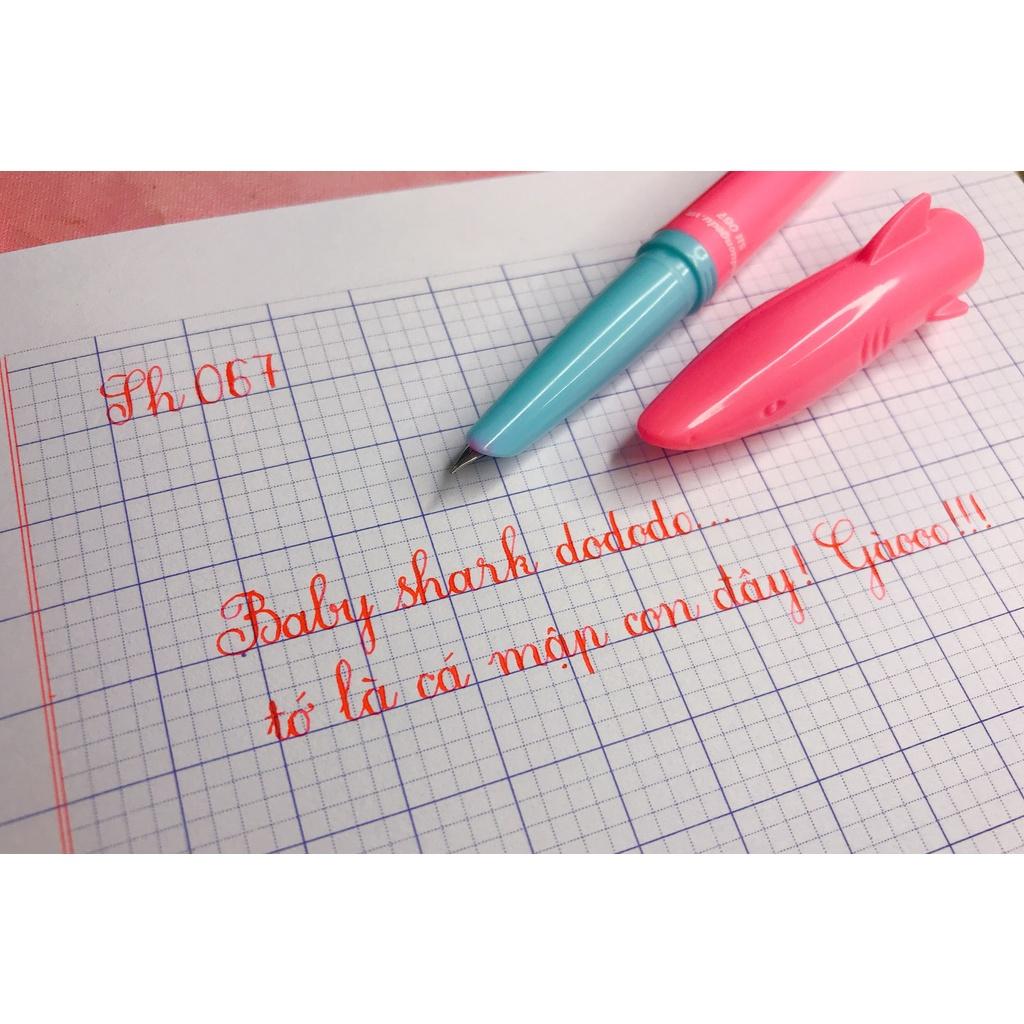 SH 067
Sh 067
Baby shark dododo...
tớ là cá mập con đây! Gàooo!!!